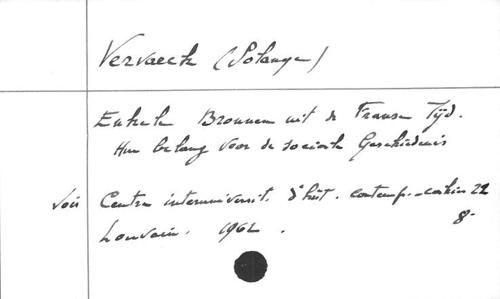 Vervaeck (Solange)
Enkele Bronnen uit de Franse Tijd.
Hun belang voor de sociale Geschiedenis
Voir Centre interuniversit. d'hist. contemp. - cahier 22
Louvain. 1962. 8-